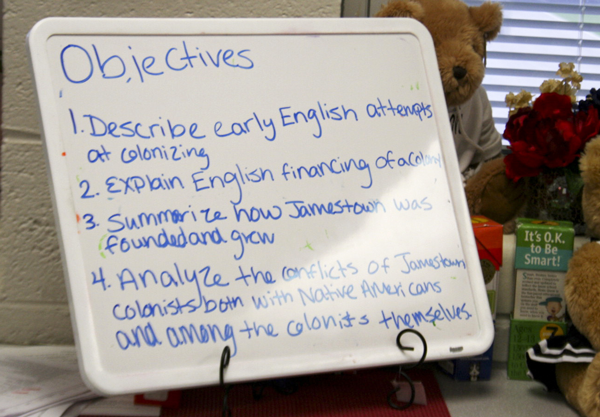 Objectives
1. Describe early English attempts
at colonizing
2. Explain English financing of a colony
3. Summarize how Jamestown was
founded and grew
4. Analyze the conflicts of Jamestown
colonists both with Native Americans
and among the colonists themselves.
It's O.K.
to Be
Smart!